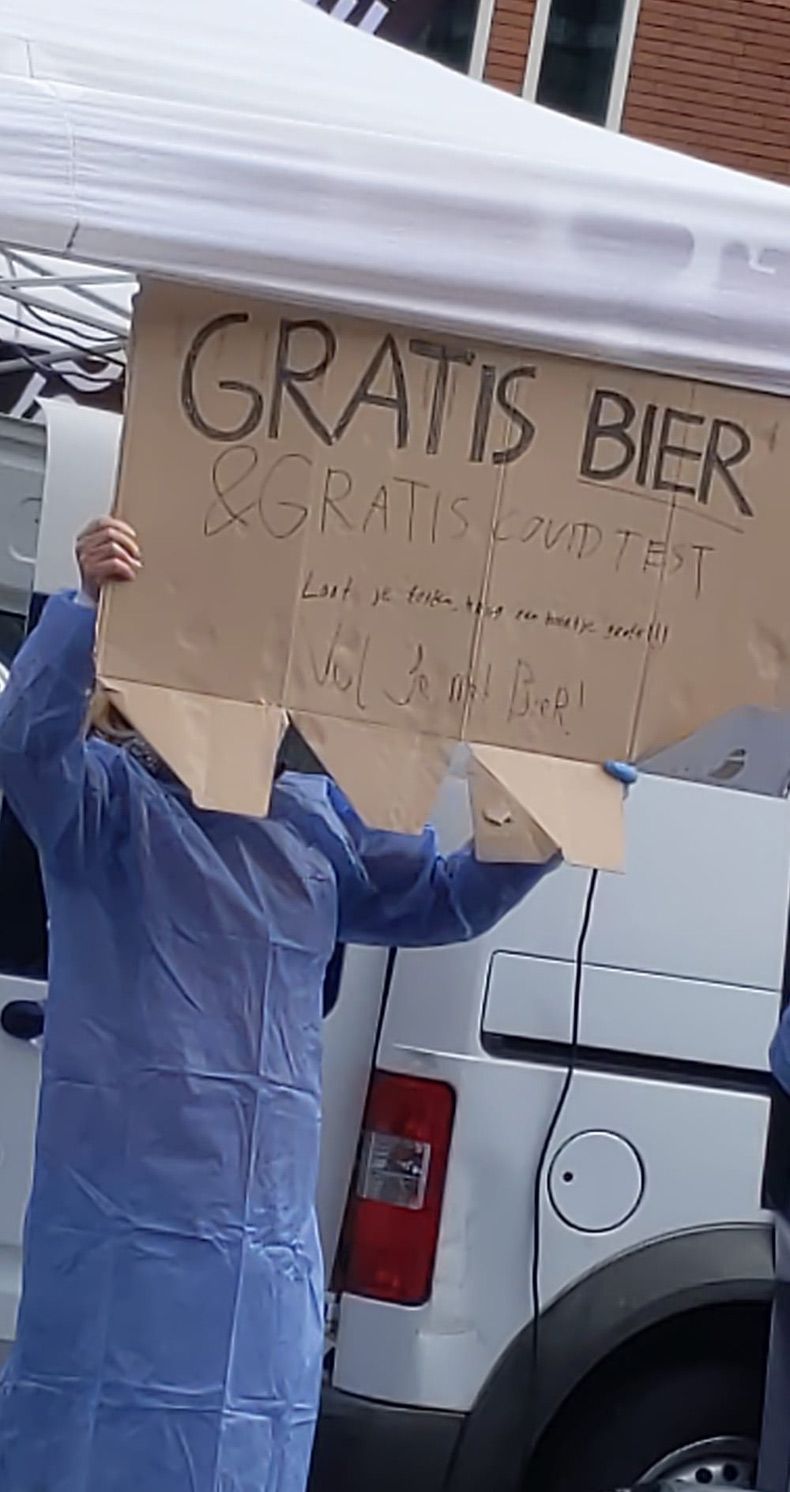 GRATIS BIER
&GRATIS COVID TEST
Laat je testen, krijg een biertje gratis!!!
Vul Je met Bier!